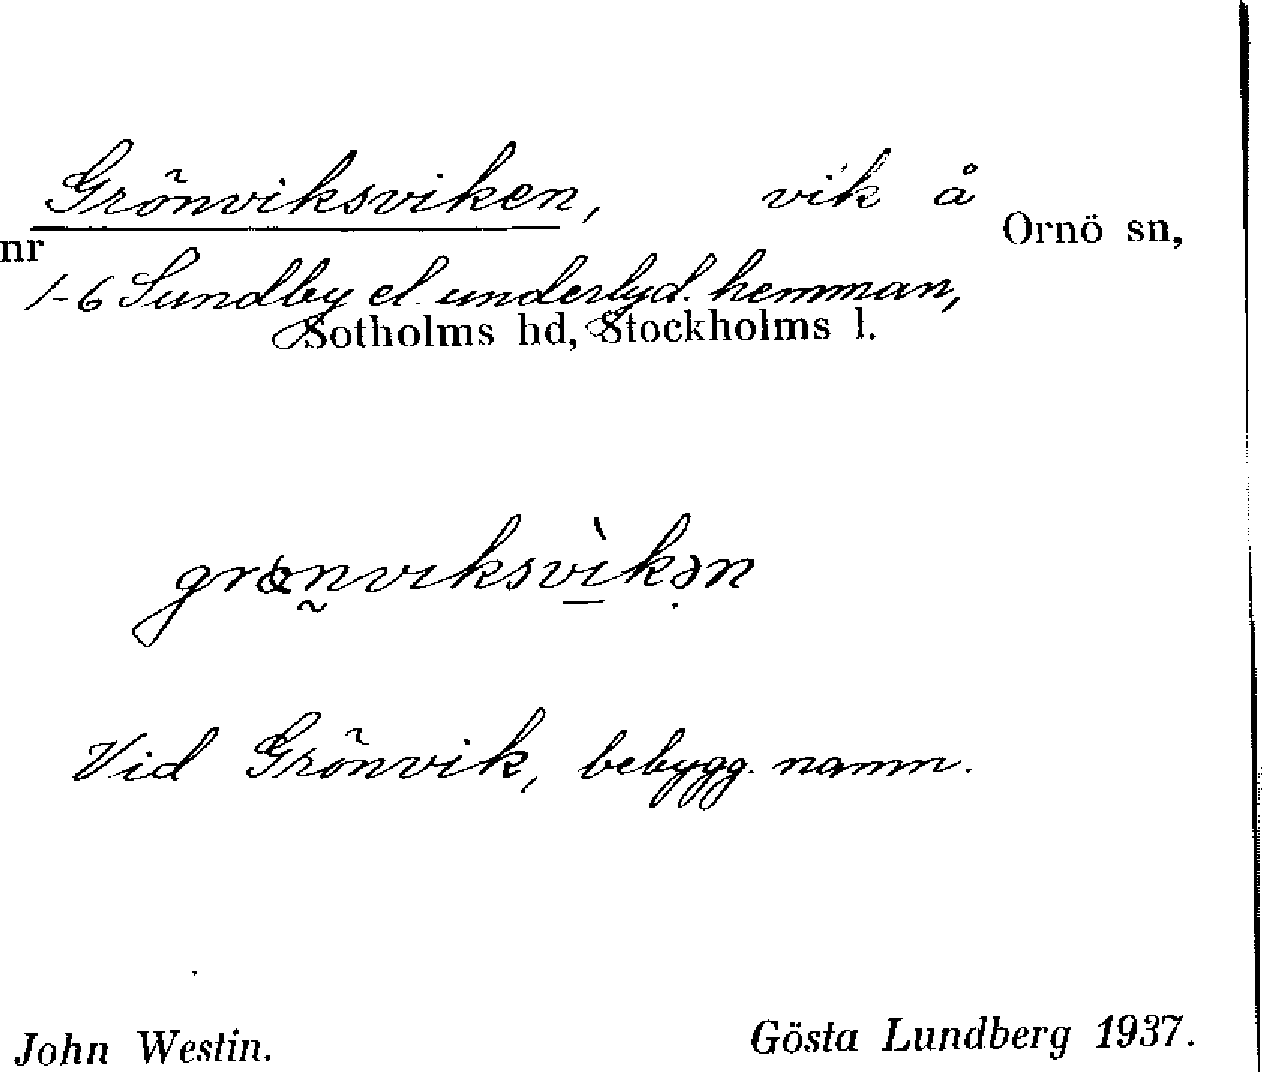 Grönviksviken, vik å Ornö sn,
nr 1-6 Sundby el. underlyd. hemman,
Sotholms hd, Stockholms l.
grɷn̰viksvìkən
Vid Grönvik, bebygg. namn.
John Westin. Gösta Lundberg 1937.